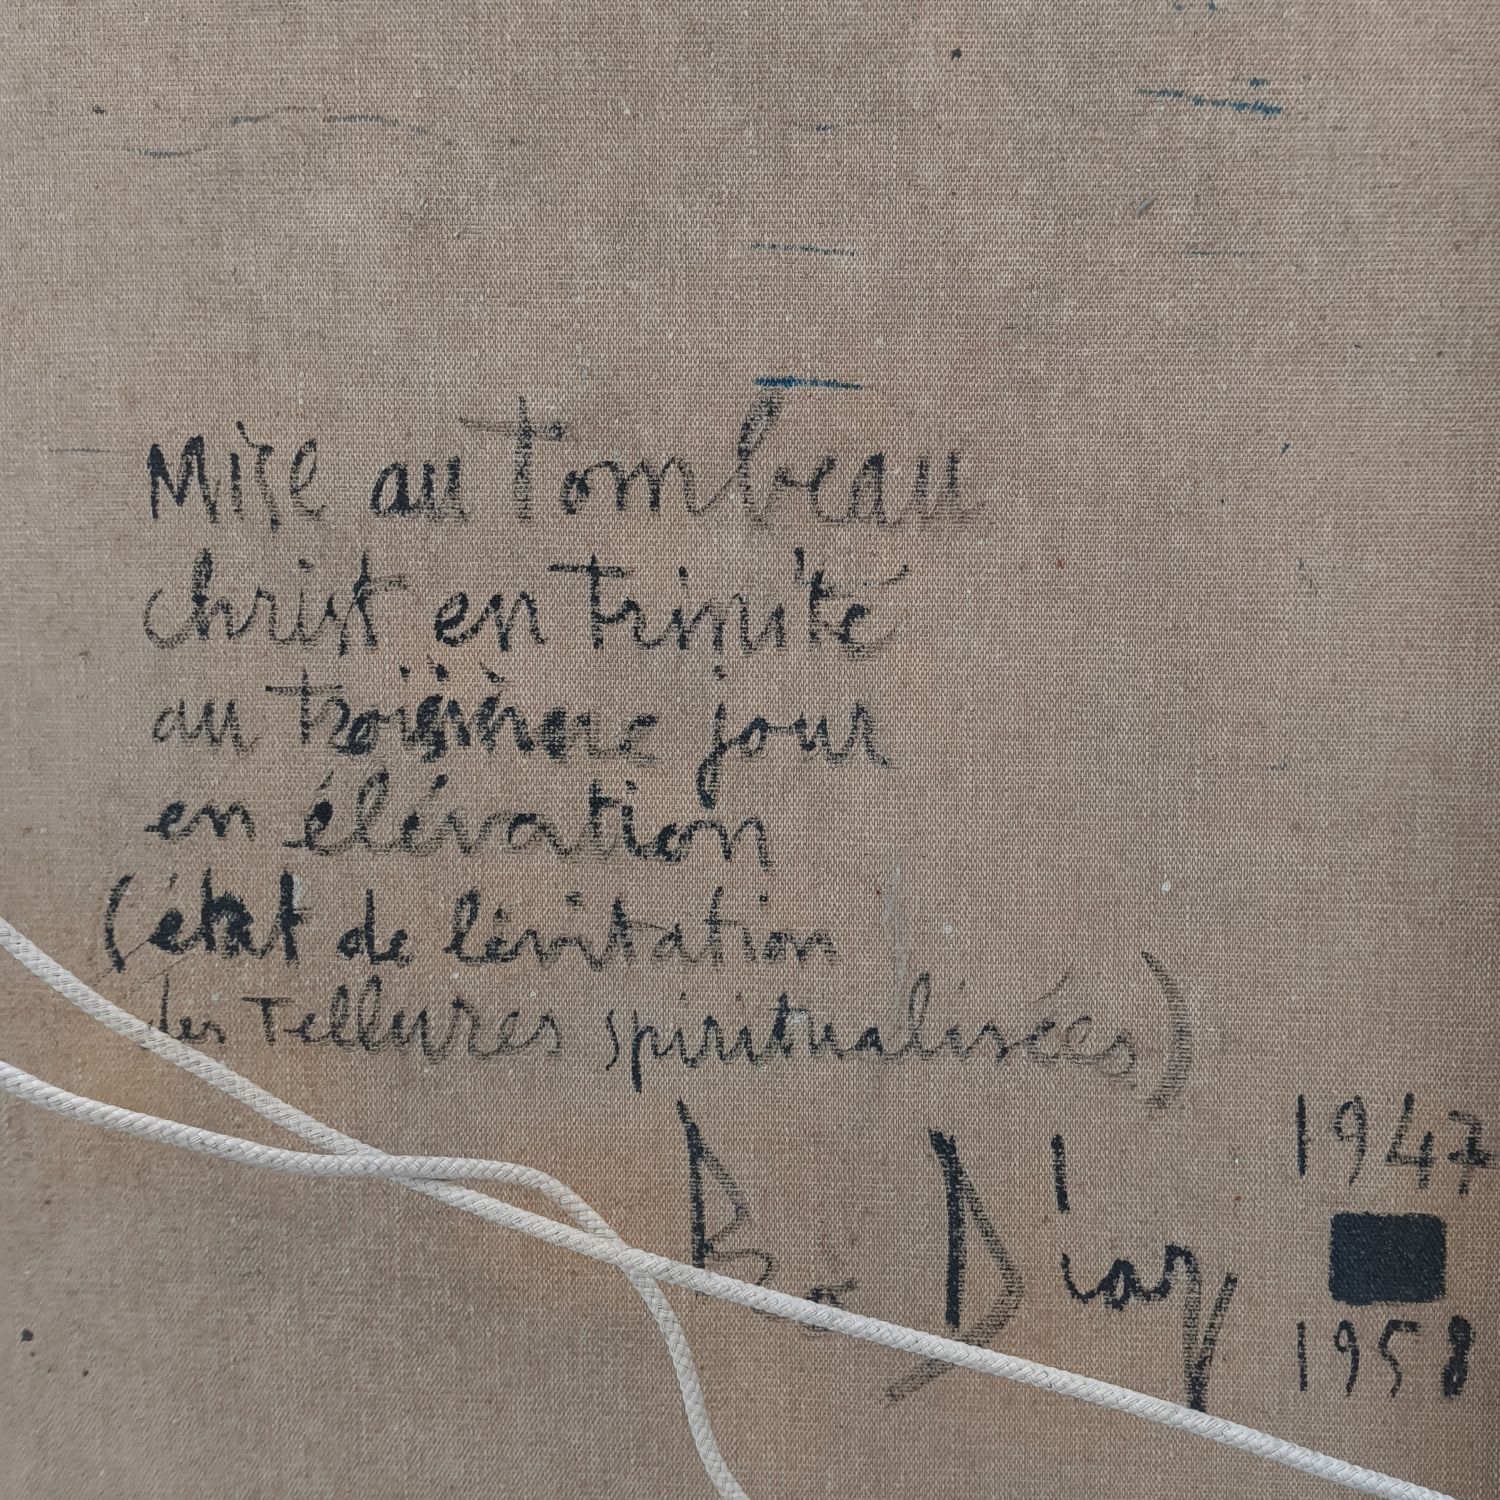 Mise au Tombeau
christ en Trinité
au troisième jour
en élévation
(état de lévitation
des Tellures spiritualisées)
Bo Diaz
1947
1958